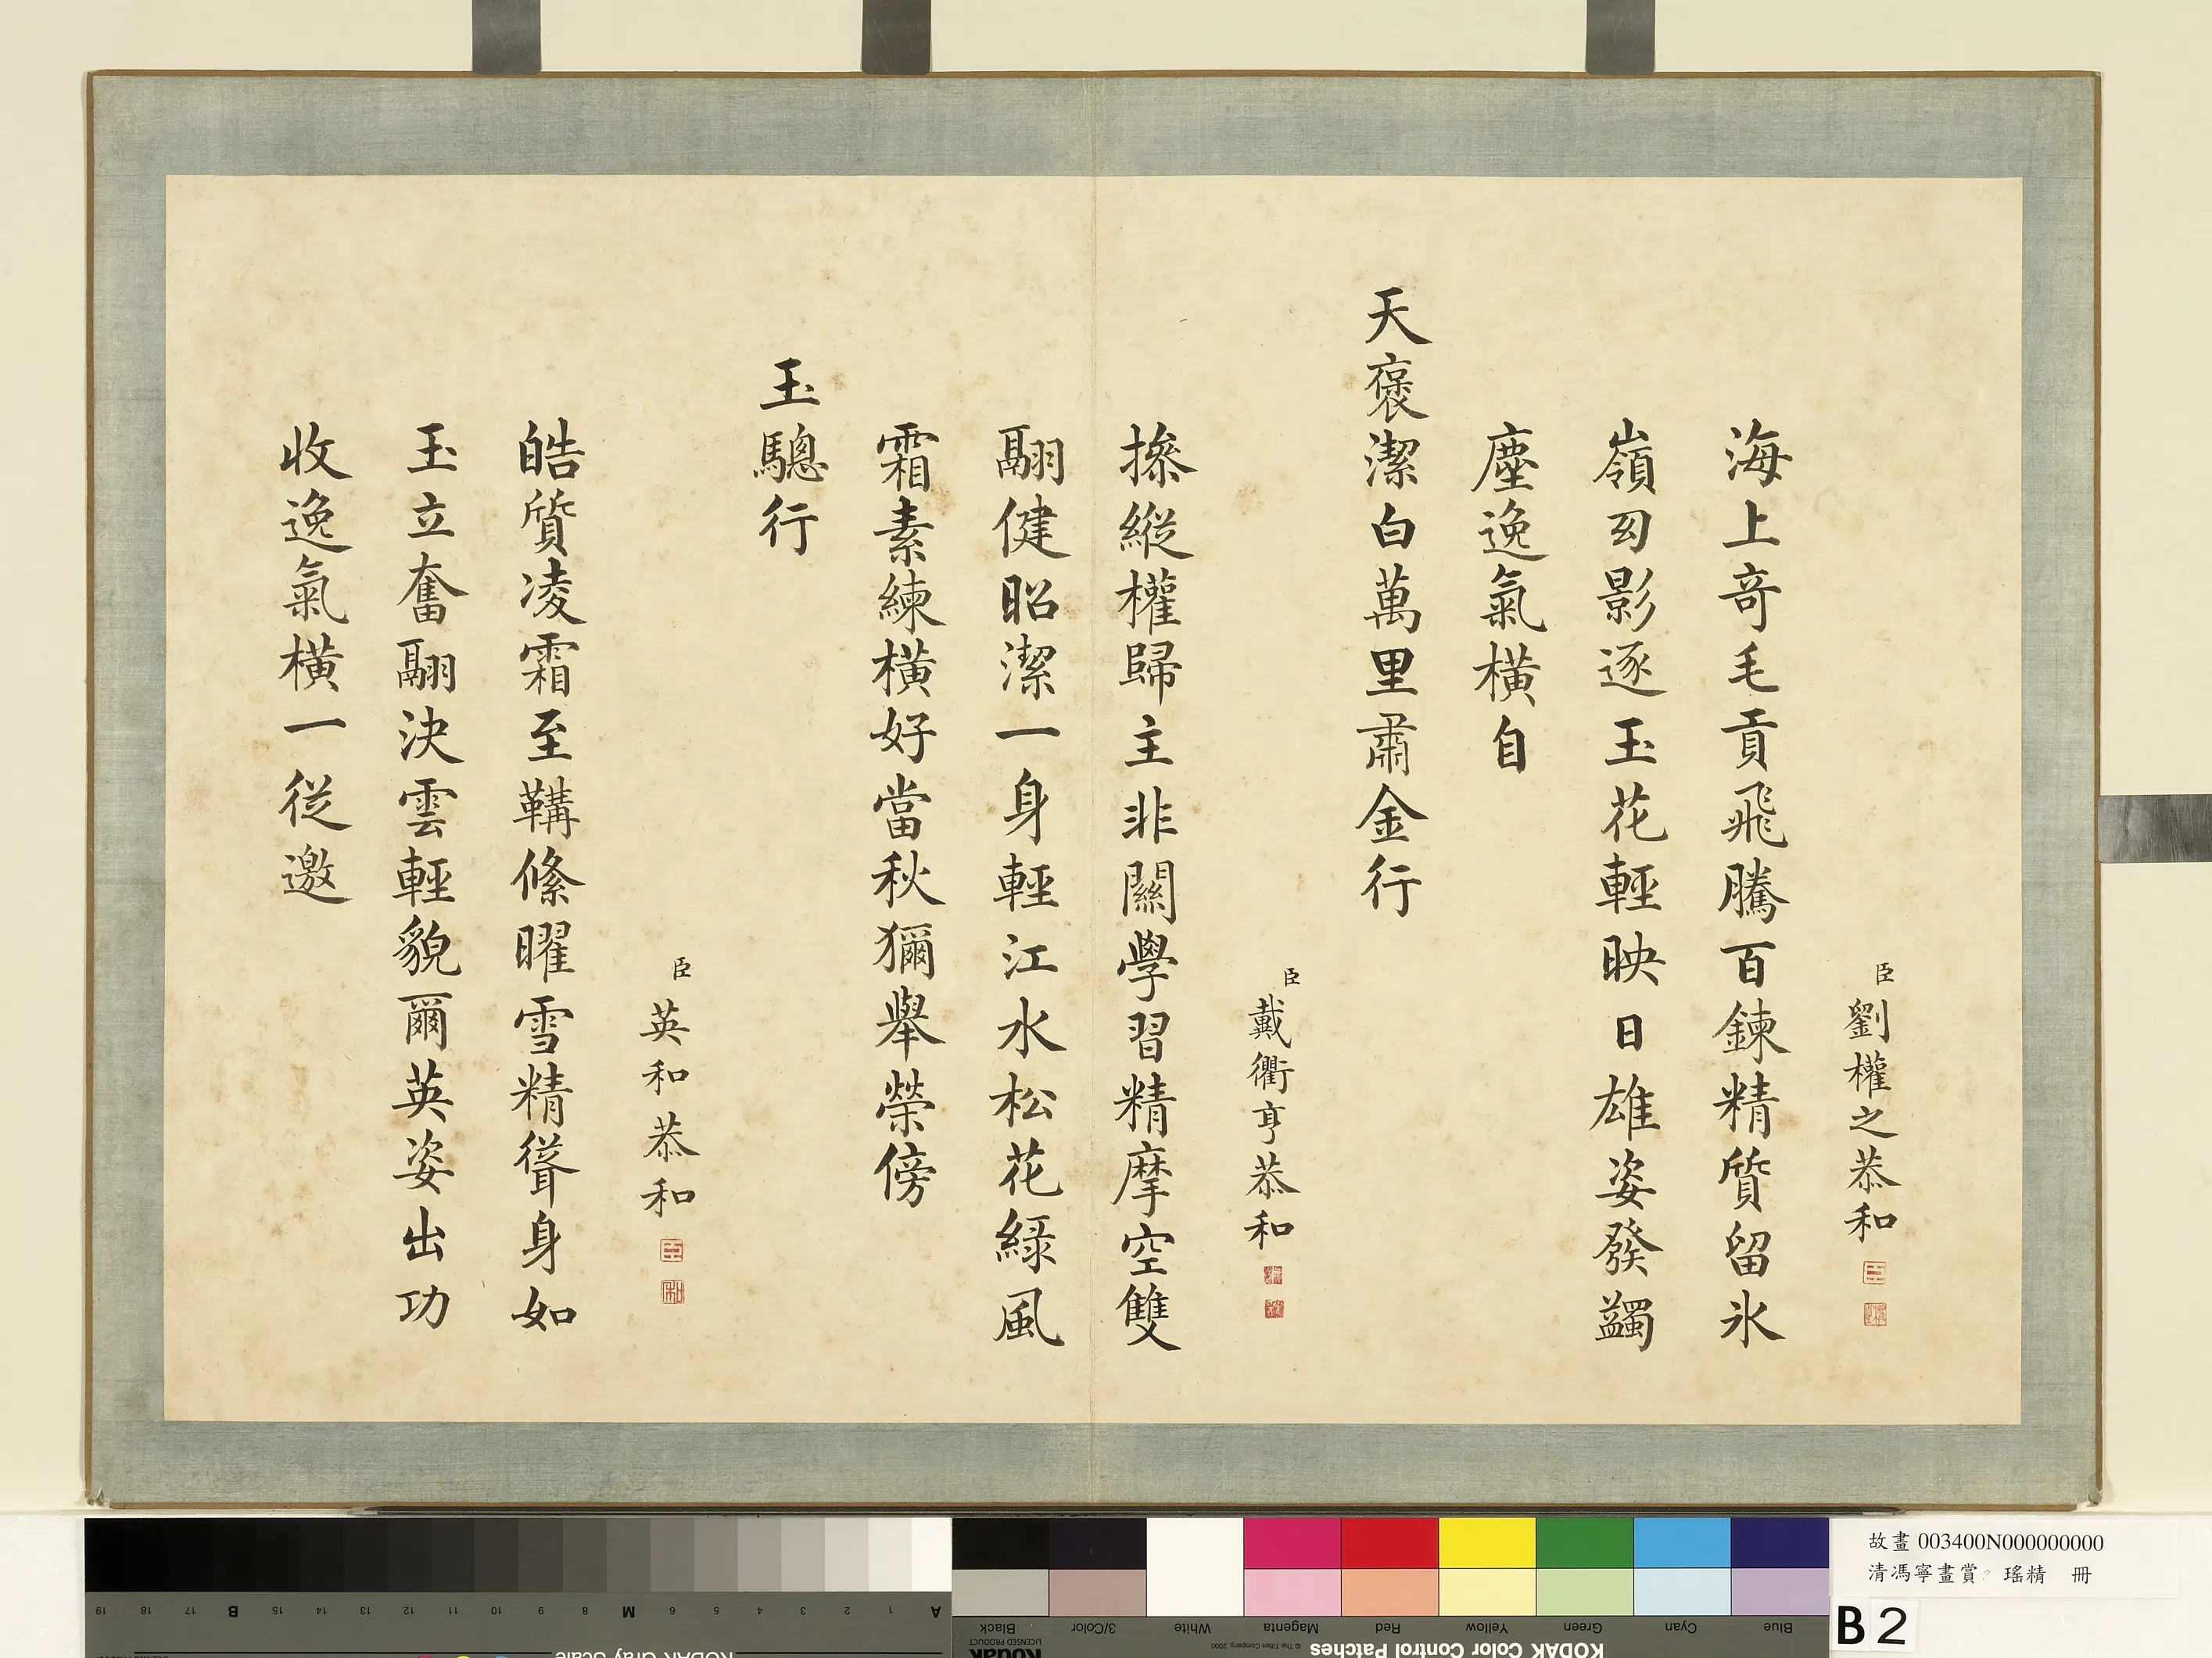 臣劉權之恭和
海上奇毛貢飛騰百鍊精質留氷
嶺囙影逐玉花輕映日雄姿發蠲
塵逸氣橫自
天褒潔白萬里肅金行
臣戴衢亨恭和
操縱權歸主非關學習精摩空雙
翮健昭潔一身輕江水松花綠風
霜素練橫好當秋獮舉榮傍
玉驄行
臣英和恭和
皓質凌霜至鞲絛曜雪精聳身如
玉立奮翮決雲輕貌爾英姿出功
收逸氣橫一從邀
故畫 003400N000000000
清馮寧畫賞 瑤精 冊
B2
19 18 17 B 15 14 13 12 11 M 9 8 7 6 5 4 3 2 1 A
Black 3/Color White Magenta Red Yellow Green Cyan Blue
Kodak
LICENSED PRODUCT
© The Tiffen Company, 2000
KODAK Color Control Patches
KODAK Gray Scale